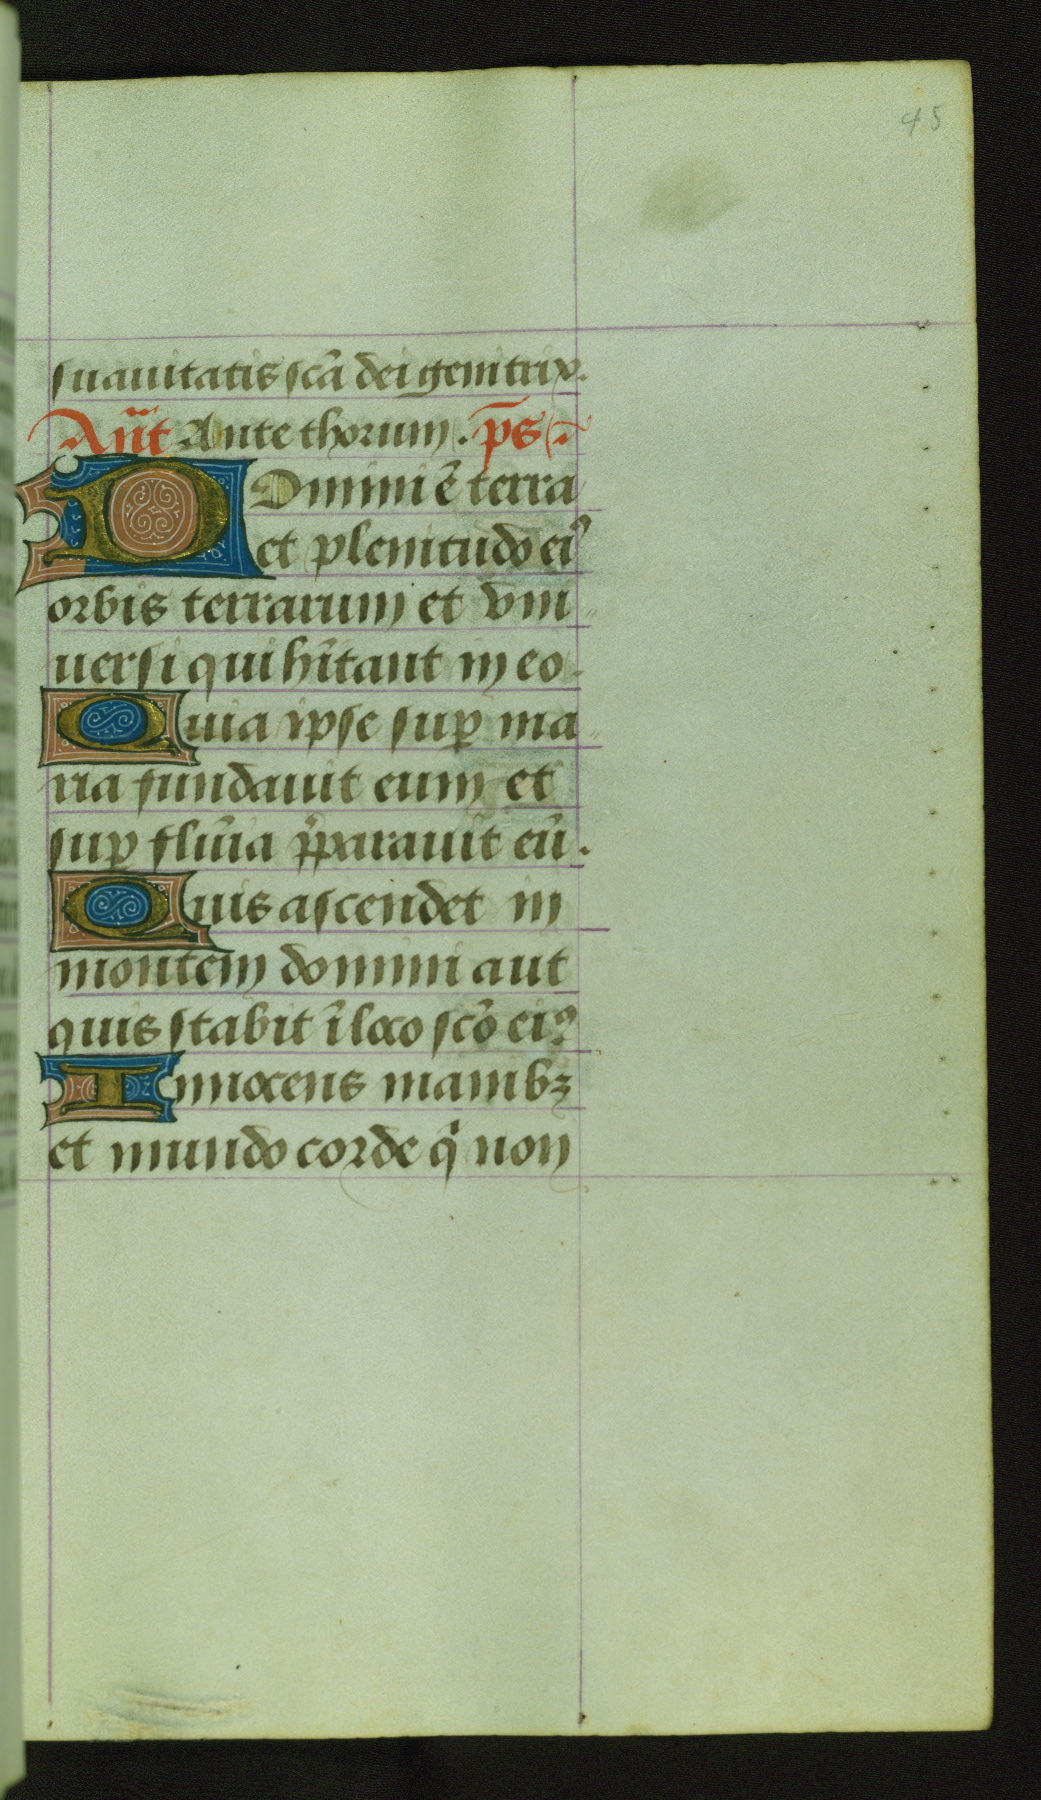 45
suauitatis scā dei genitrix.
An̄t Ante thorum. p̄s
Domini ē terra
et plenitudo eiꝰ
orbis terrarum et vni
uersi qui hītant in eo.
Quia ipse suꝑ ma
ria fundauit eum et
suꝑ flum̄a p̄parauit eū.
Quis ascendet in
montem domini aut
quis stabit ī loco scō eiꝰ
Innocens manibꝫ
et mundo corde q̇ non